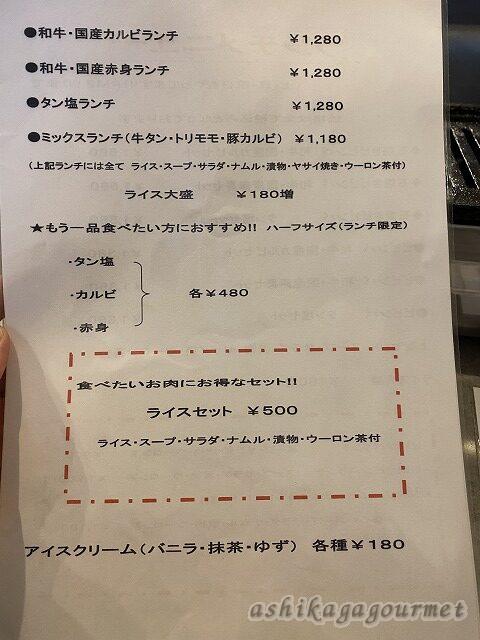 ●和牛・国産カルビランチ ￥1,280
●和牛・国産赤身ランチ ￥1,280
●タン塩ランチ ￥1,280
●ミックスランチ(牛タン・トリモモ・豚カルビ) ￥1,180
(上記ランチには全て ライス・スープ・サラダ・ナムル・漬物・ヤサイ焼き・ウーロン茶付)
ライス大盛 ￥180増
★もう一品食べたい方におすすめ!! ハーフサイズ(ランチ限定)
・タン塩
・カルビ 各￥480
・赤身
食べたいお肉にお得なセット!!
ライスセット ￥500
ライス・スープ・サラダ・ナムル・漬物・ウーロン茶付
アイスクリーム(バニラ・抹茶・ゆず) 各種￥180
ashikagagourmet